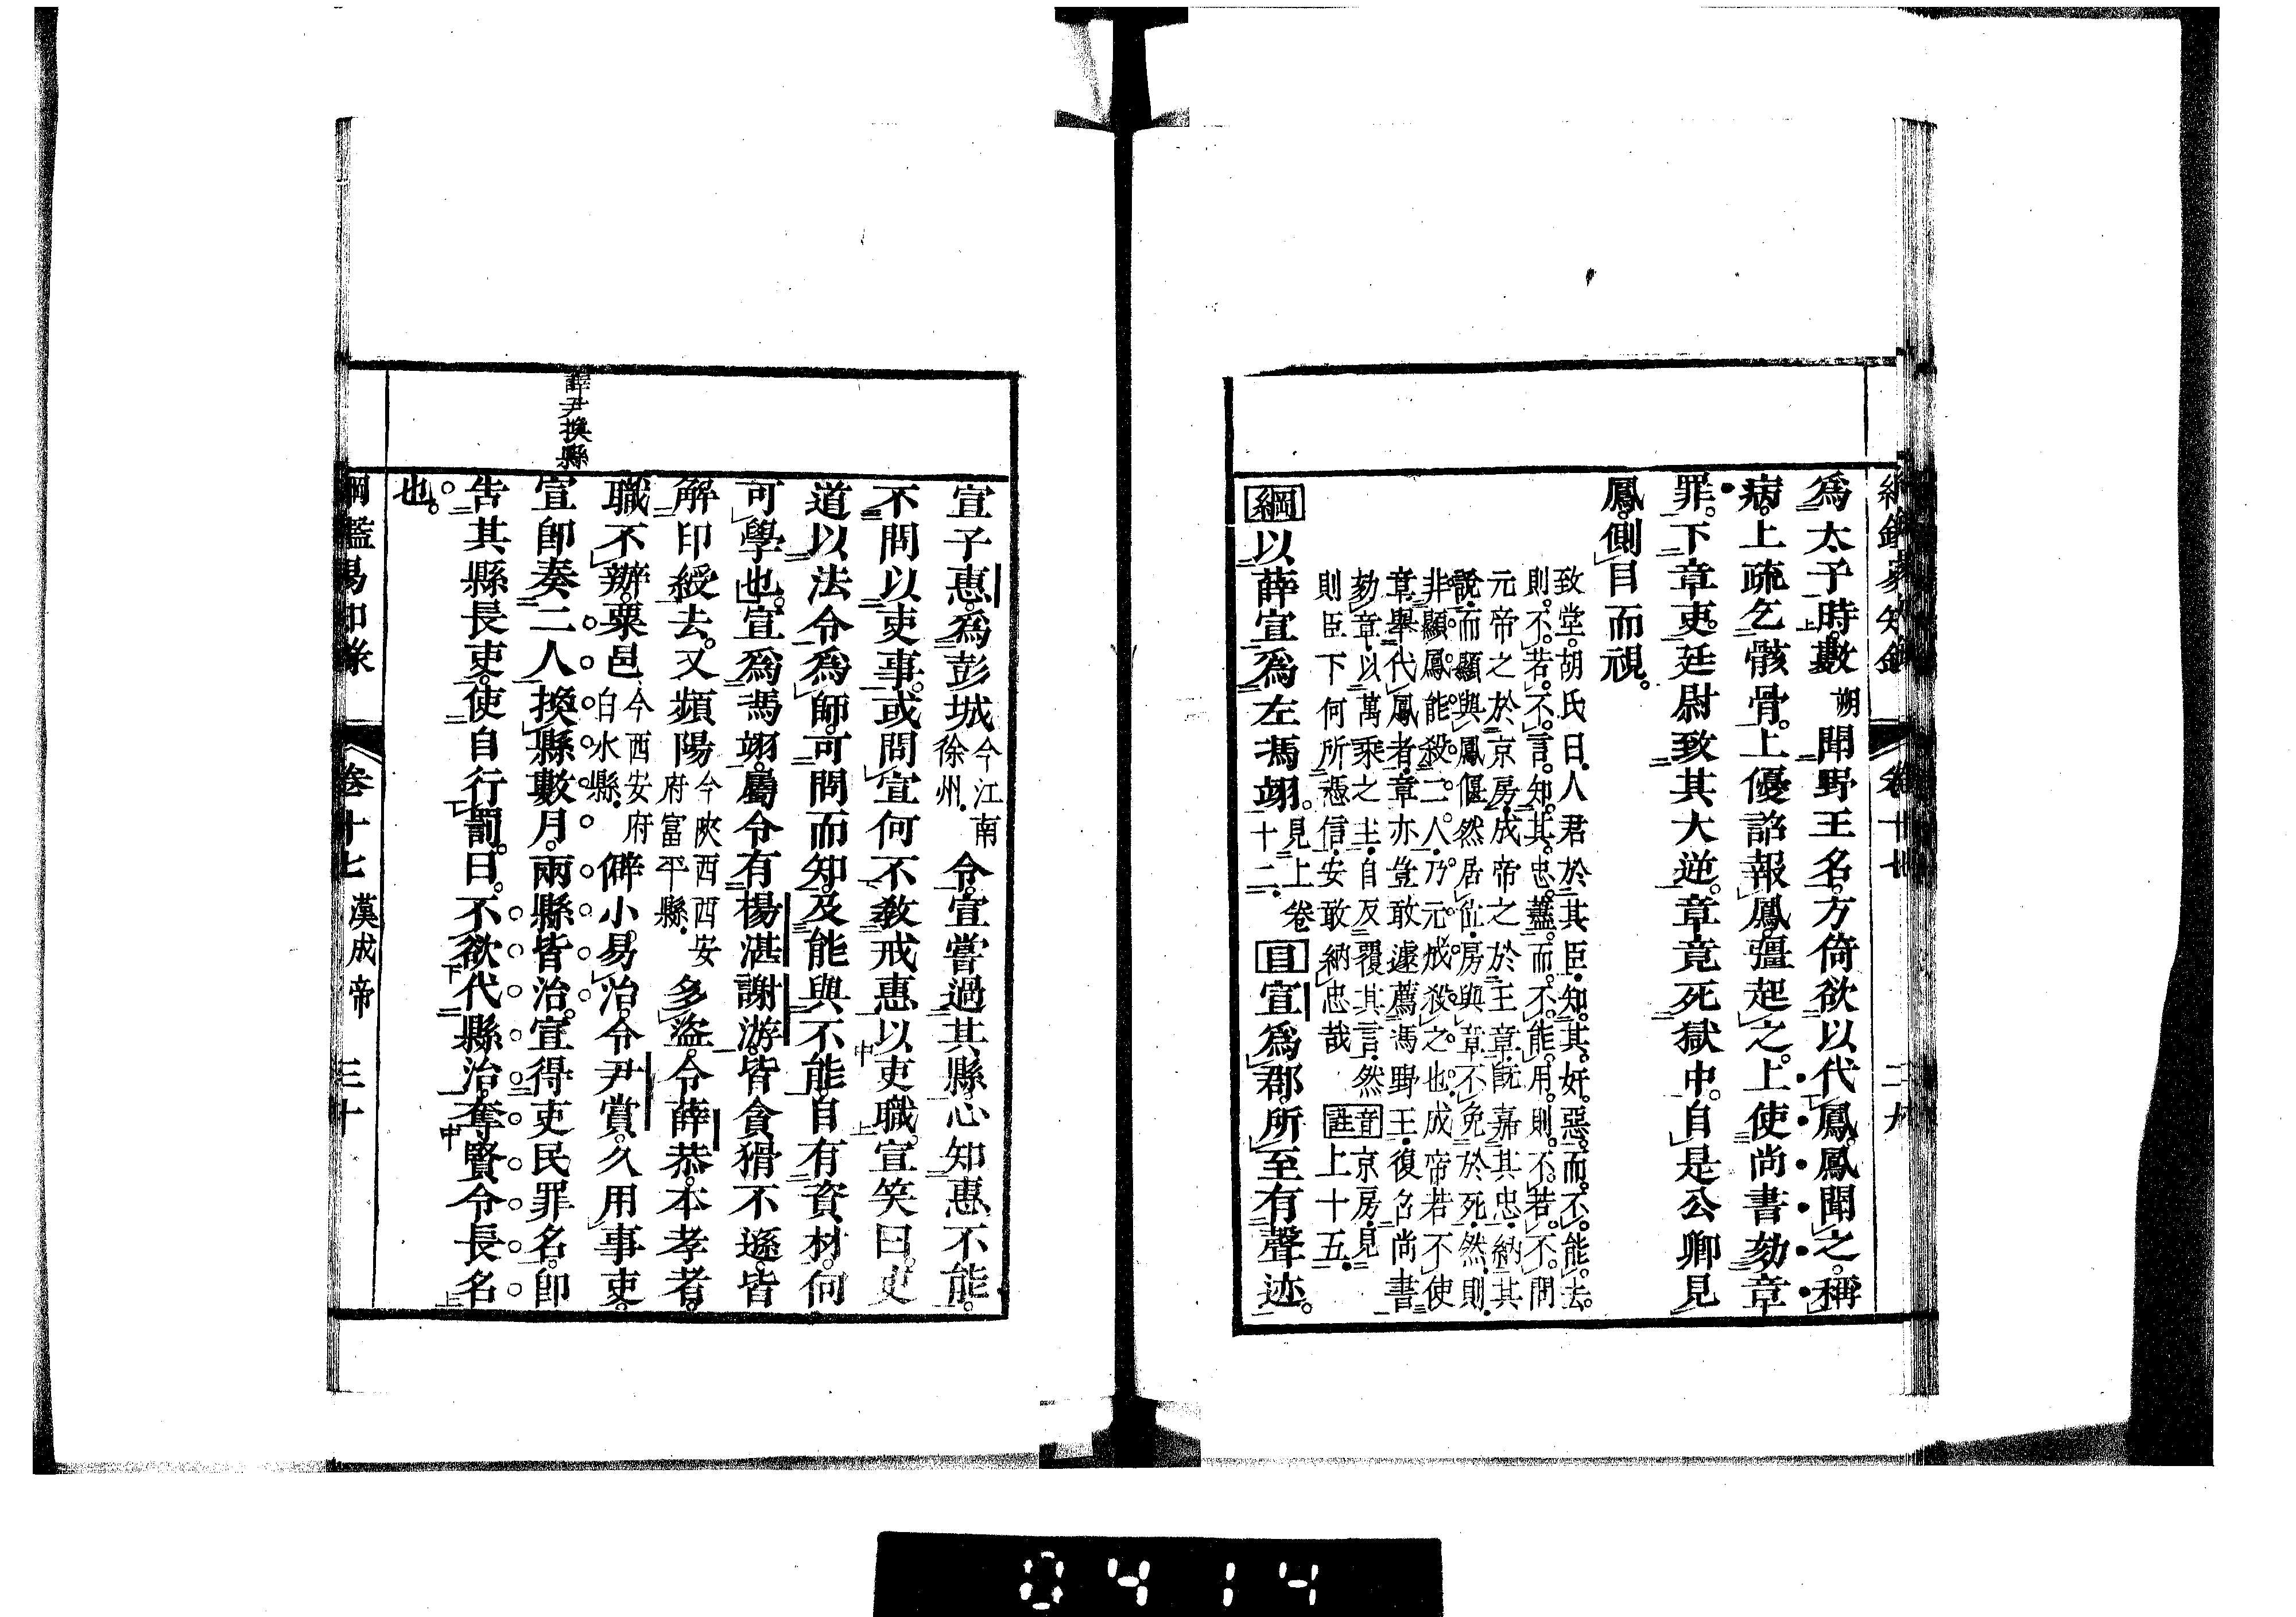 爲太子時數朔聞野王名方倚欲以代鳳鳳聞之稱
病上疏乞骸骨上優詔報鳳彊起之上使尚書劾章
罪下章吏廷尉致其大逆章竟死獄中自是公卿見
鳳側目而視
致堂胡氏曰人君於其臣知其奸惡而不能去
則不若不言知其忠藎而不能用則不若不問
元帝之於京房成帝之於王章旣嘉其忠納其
說而顯與鳳偃然居位房與章不免於死然則
非顯鳳能殺二人乃元成殺之也成帝若不使
章舉代鳳者章亦豈敢遽薦馮野王復召尚書
劾章以萬乘之主自反覆其言然
則臣下何所憑信安敢納忠哉
音註京房見上十五
綱以薛宣爲左馮翊見上卷十二目宣爲郡所至有聲迹
宣子惠爲彭城今江南徐州令宣嘗過其縣心知惠不能
不問以吏事或問宣何不敎戒惠以吏職宣笑曰吏
道以法令爲師可問而知及能與不能自有資材何
可學也宣爲馮翊屬令有楊湛謝游皆貪猾不遜皆
解印綬去又頻陽今陝西西安府富平縣多盜令薛恭本孝者
職不辦粟邑今西安府白水縣僻小易治令尹賞久用事吏
宣卽奏二人換縣數月兩縣皆治宣得吏民罪名卽
告其縣長吏使自行罰曰不欲代縣治奪賢令長名
也
薛尹換縣
綱鑑易知錄 卷十七 漢成帝 三十
0414